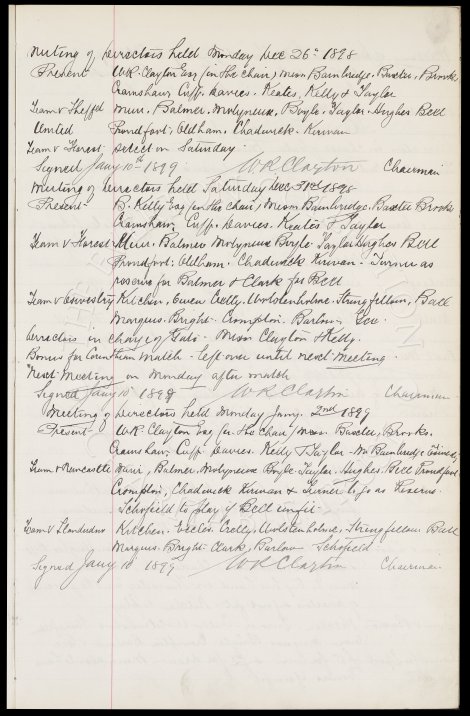 Meeting of Directors held Monday Dec 26th 1898
Present W.R. Clayton Esq (in the Chair) Messrs Bainbridge. Baxter, Brooks
Cranshaw, Cuff. Davies. Keates, Kelly & Taylor
Team v Sheffd Muir. Balmer. Molyneux, Boyle. Taylor. Hughes Bell
United Proudfoot. Oldham. Chadwick. Kirwan
Team v Forest select on Saturday.
Signed Jany 10th 1899 W R Clayton Chairman
Meeting of Directors held Saturday Dec 31st 1898
Present B. Kelly Esq (in the Chair) Messrs Bainbridge. Baxter Brooks
Cranshaw, Cuff. Davies Keates & Taylor
Team v Forest Muir. Balmer Molyneux Boyle. Taylor Hughes Bell
Proudfoot. Oldham. Chadwick Kirwan. Turner as
reserve for Balmer & Clark for Bell
Team v Oswestry Kitchen. Owen Crelly. Wolstenholme. Stringfellow, Ball
Marquis. Bright. Crompton. Barlow. Gee.
Directors in charge of Gate. Messrs Clayton & Kelly.
Bonus for Corinthian match. left over until next meeting.
Next Meeting on Monday after match
Signed Jany 10 1899 W R Clayton Chairman
Meeting of Directors held Monday Jany. 2nd 1899
Present W.R. Clayton Esq (in the Chair) Messrs Baxter, Brooks.
Cranshaw, Cuff. Davies. Kelly & Taylor. Mr Bainbridge
Team v Newcastle Muir, Balmer. Molyneux Boyle. Taylor. Hughes. Bell Proudfoot
Crompton, Chadwick Kirwan & Turner to go as Reserve.
Schofield to play if Bell unfit.
Team v Llandudno Kitchen. Eccles Crelly. Wolstenholme. Stringfellow Ball
Marquis. Bright. Clark, Barlow Schofield
Signed Jany 10 1899 W R Clayton Chairman